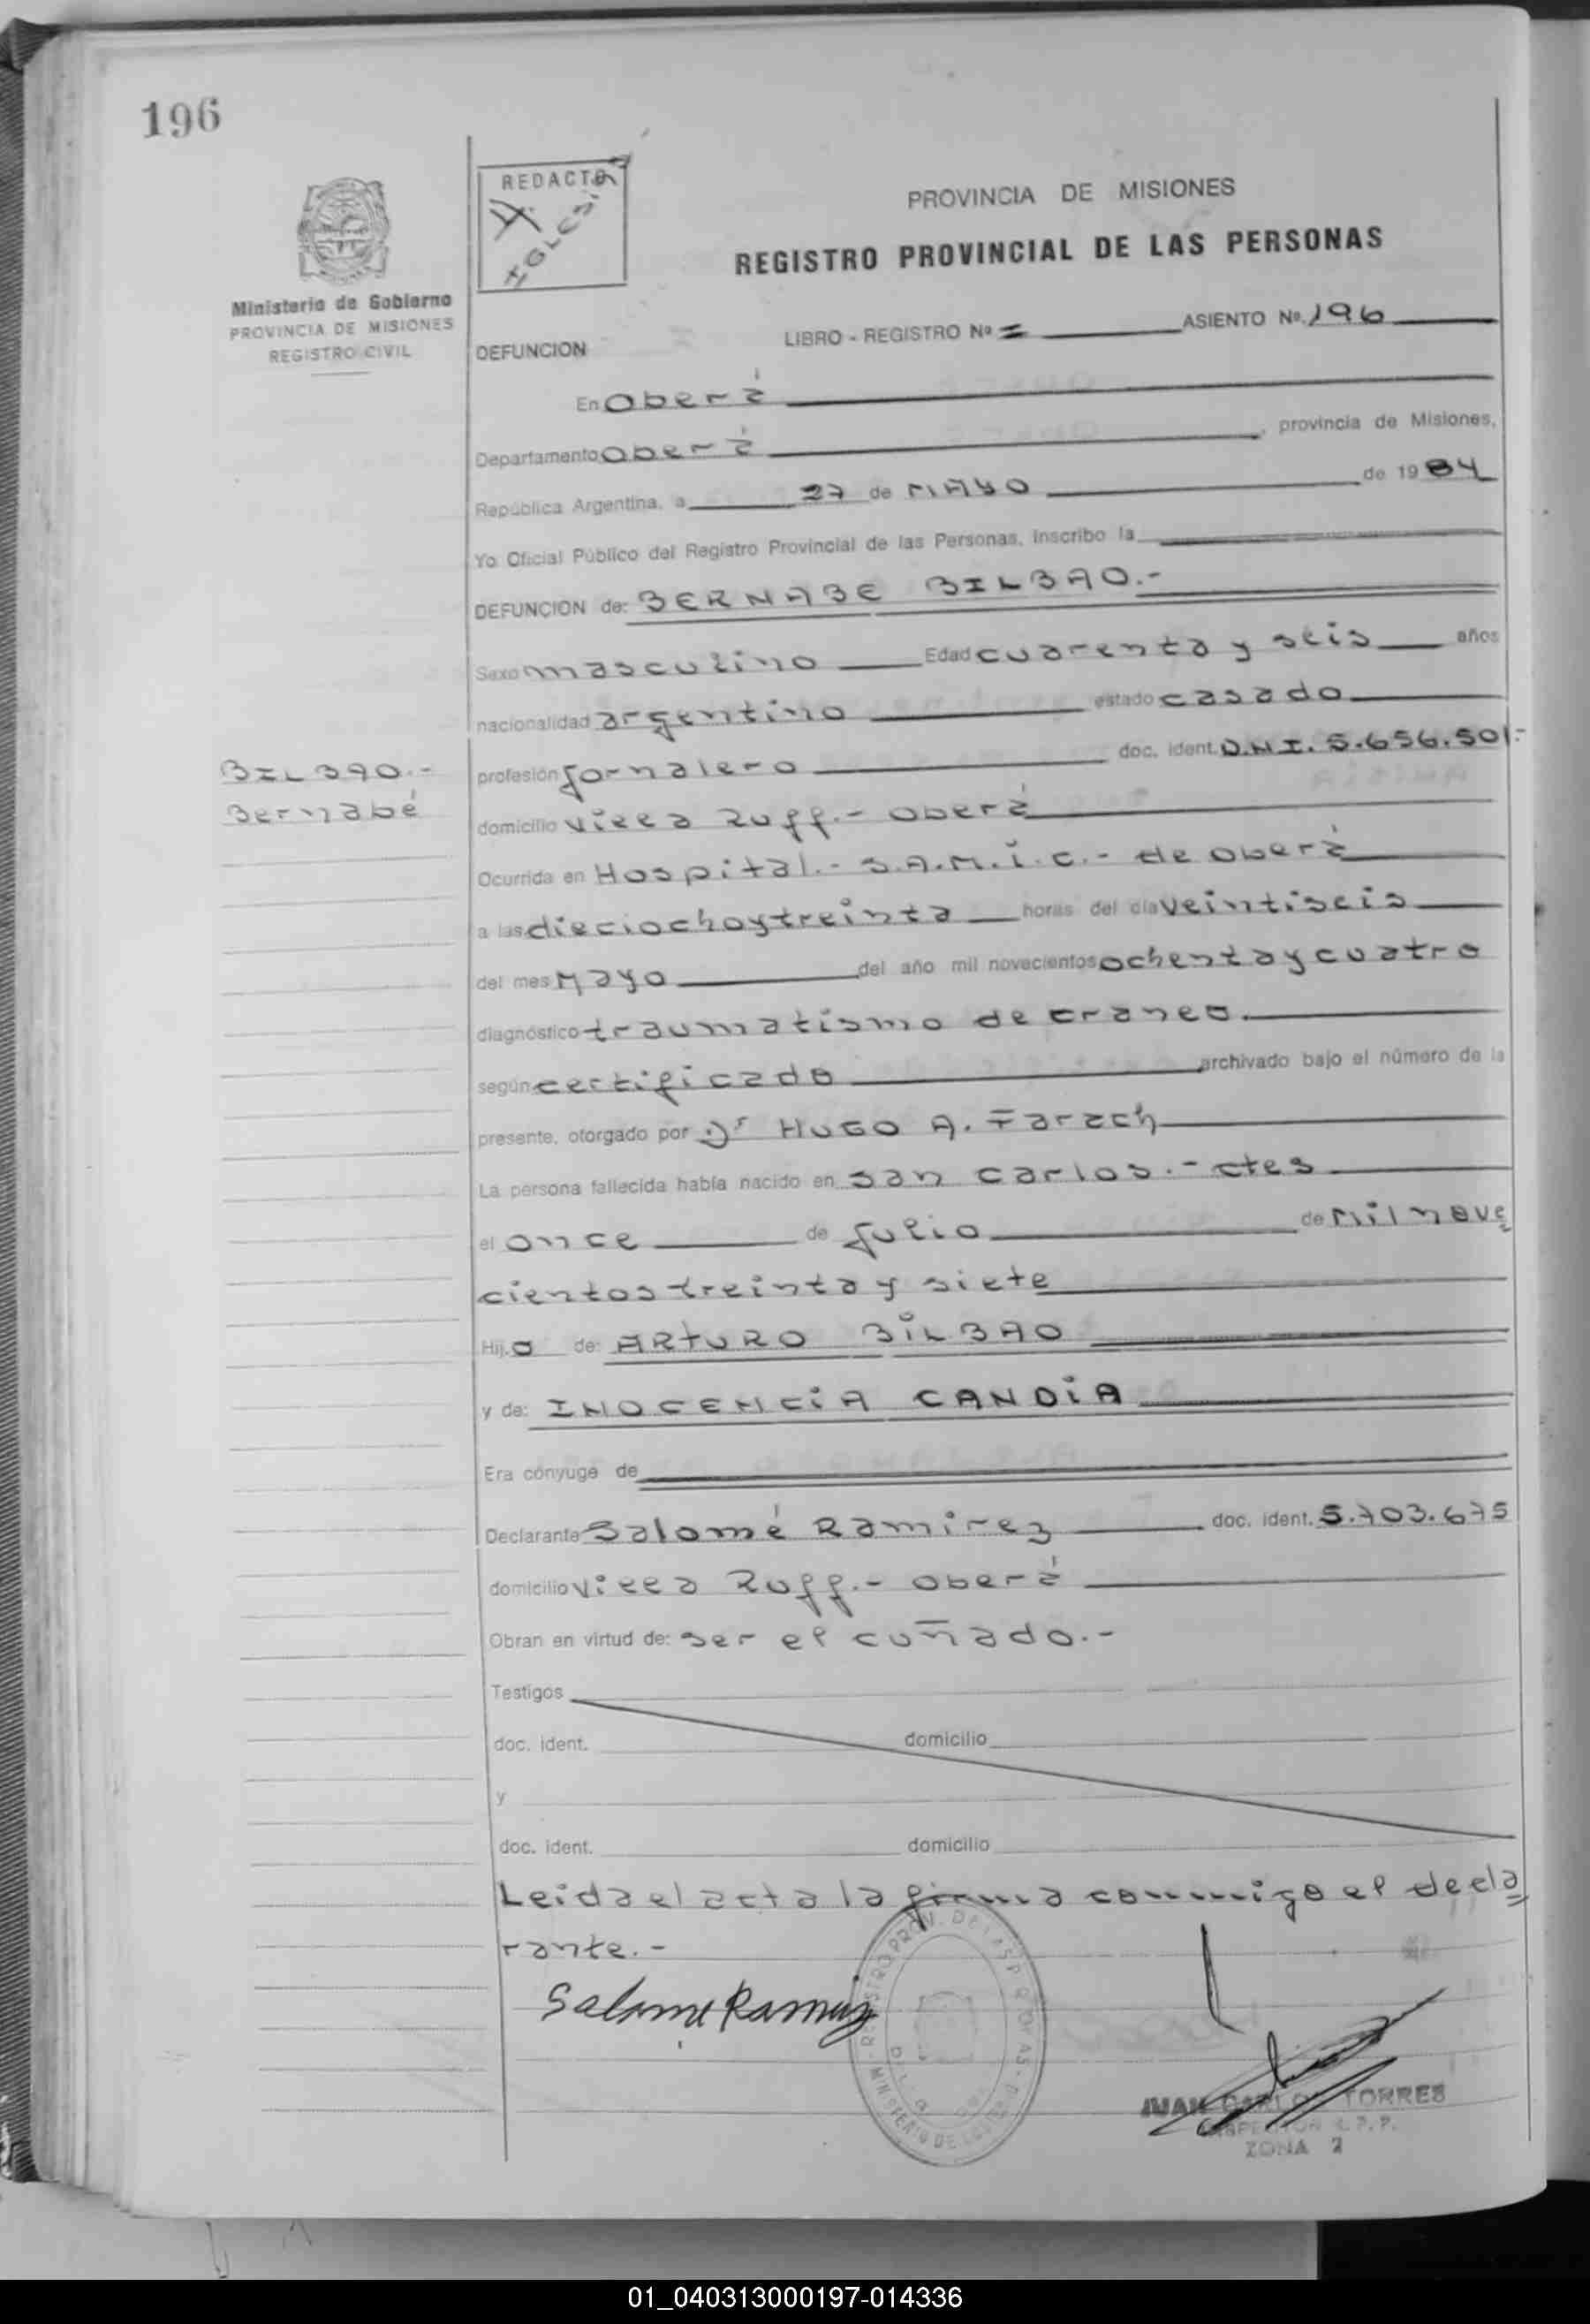 196
REDACTO
Ministerio de Gobierno
PROVINCIA DE MISIONES
REGISTRO CIVIL
PROVINCIA DE MISIONES
REGISTRO PROVINCIAL DE LAS PERSONAS
DEFUNCION LIBRO - REGISTRO Nº I ASIENTO Nº 196
En Oberá
Departamento Oberá, provincia de Misiones,
República Argentina, a 27 de MAYO de 1984
Yo Oficial Público del Registro Provincial de las Personas, inscribo la
DEFUNCION de: BERNABE BILBAO.-
Sexo masculino Edad cuarenta y seis años
nacionalidad argentino estado casado
profesión jornalero doc. ident. D.N.I. 5.656.501.-
BILBAO.-
Bernabé
domicilio Villa Ruff.- Oberá
Ocurrida en Hospital.- S.A.M.I.C.- de Oberá
a las dieciochoytreinta horas del día veintiseis
del mes Mayo del año mil novecientos ochentaycuatro
diagnóstico traumatismo de craneo.
según certificado archivado bajo el número de la
presente, otorgado por Dr HUGO A. Farach
La persona fallecida había nacido en San Carlos.- ctes
el once de Julio de Milnove
cientos treinta y siete
Hijo de: ARTURO BILBAO
y de: INOCENCIA CANDIA
Era cónyuge de
Declarante Salomé Ramirez doc. ident. 5.703.675
domicilio Villa Ruff.- Oberá
Obran en virtud de: ser el cuñado.-
Testigos
doc. ident. domicilio
y
doc. ident. domicilio
Leida el acta la firma conmigo el decla
rante.-
Salome Ramirez
JUAN CARLOS TORRES
INSPECTOR R.P.P.
ZONA 2
01_040313000197-014336